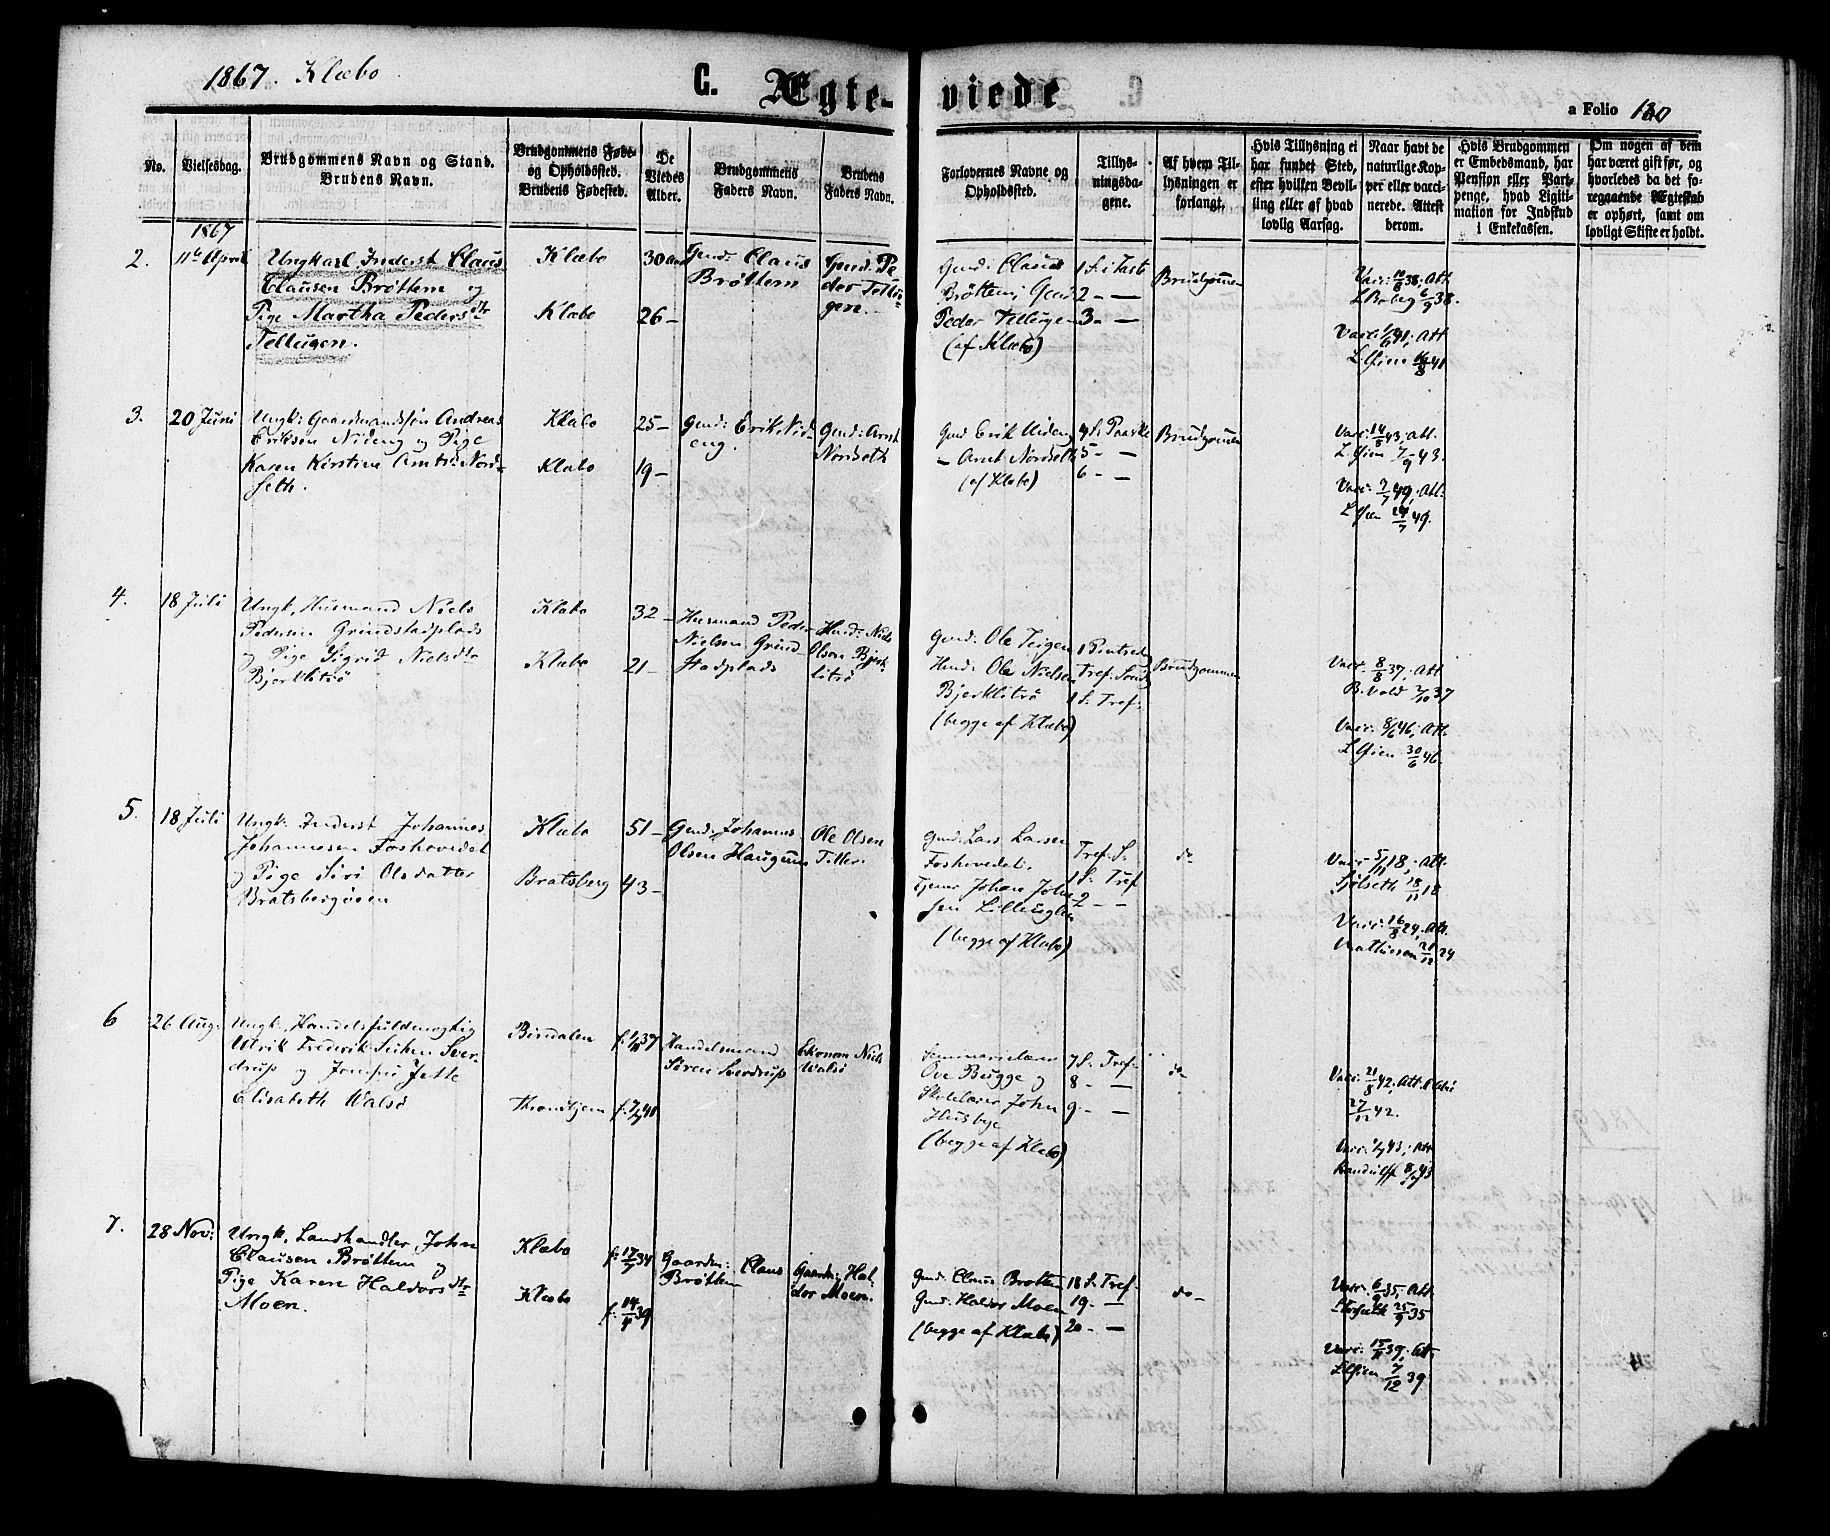 1867. Klæbo
C. Ægte-viede
a Folio 130
No.
Vielsesdag.
Brudgommens Navn og Stand.
Brudens Navn.
Brudgommens Føde-
og Opholdssted.
Brudens Fødested.
De
Viedes
Alder.
Brudgommens
Faders Navn.
Brudens
Faders Navn.
Forlovernes Navne og
Opholdssted.
Tillys-
ningsda-
gene.
Af hvem Til-
lysningen er
forlangt.
Hvis Tillysning ei
har fundet Sted,
efter hvilken Bevil-
ling eller af hvad
lovlig Aarsag.
Naar havt de
naturlige Kop-
per eller vacci-
nerede. Attest
herom.
Hvis Brudgommen
er Embedsmand, har
Pension eller Vart-
penge, hvad Ligiti-
mation for Indskud
i Enkekassen.
Om nogen af dem
har været gift før, og
hvorledes da det fo-
regaaende Ægteskab
er ophørt, samt om
lovligt Skifte er holdt.
1867
2.
11te April
Ungkarl Inderst Claus
Clausen Brøttem og
Pige Martha Pedersdtr
Tellugen.
Klæbo
Klæbo
30 Aar
26 –
Gmd: Claus
Brøttem
Gmd: Pe-
der Tellu-
gen.
Gmd: Claus
Brøttem, Gmd
Peder Tellugen
(af Klæbo)
1 S. i Faste
2 – –
3 – –
Brudgommen
Vacc: 10/8 38; Att
L. Broberg 6/9 38.
Vacc: 1/6 41; Att
L. Øien 16/8 41
3.
20 Juni
Ungk: Gaardmandssøn Andreas
Eriksen Nideng og Pige
Karen Kirstine Arntsd: Nord-
seth.
Klæbo
Klæbo
25 –
19 –
Gmd: Erik Nid-
eng.
Gmd: Arnt
Nordseth
Gmd Erik Nideng
– Arnt Nordseth
(af Klæbo)
4 S. Paaske
5 – –
6 – –
Brudgommen
Vacc: 14/8 43; Att.
L. Øien 7/9 43.
Vacc: 7/7 49; Att.
L. Øien 24/7 49.
4.
18 Juli
Ungk, Husmand Niels
Pedersen Grindstadplads
og Pige Sigrid Nielsdtr
Bjerklitrø
Klæbo
Klæbo
32 –
21 –
Husmand Peder
Nielsen Grind-
stadplads
Husd: Niels
Olsen Bjerk-
litrø
Gmd: Ole Teigen
Husd: Ole Nielsen
Bjerklitrø
(begge af Klæbo)
Tref. Sønd
1 S. Tref:
Brudgommen
Vacc: 8/8 37; Att
B. Vold 2/10 37
Vacc: 8/6 46; Att.
L. Øien 30/6 46.
5.
18 Juli
Ungk: Inderst Johannes
Johannesen Forshovedet
og Pige Siri Olsdatter
Bratsbergøien
Klæbo
Bratsberg
51 –
43 –
Gmd: Johannes
Olsen Haugum
Ole Olsen
Tiller.
Gmd: Lars Larsen
Forshovedet.
Tjener Johan John-
sen Lilleuglen
(begge af Klæbo)
Tref. S.
1 S. Tref
2 – –
do
Vacc: 5/11 18; Att.
Sjølseth 18/11 18
Vacc: 16/8 24; Att.
Mathiesen 21/12 24
6
26 Aug.
Ungk, Handelsfuldmægtig
Ulrik Frederik Suhm Sver-
drup og Jomfru Jette
Elisabeth Walsø
Bindalen
Throndhjem
f. 1/11 37
f. 7/7 41
Handelsmand
Søren Sverdrup
Økonom Niels
Walsø
Seminarielærer
Ove Bugge og
Skolelærer John
Husbye
(begge af Klæbo)
7 S. Tref.
8 – –
9 – –
do
Vacc: 21/8 42; Att.
27/12 42.
43; Att
Randulff 8/7 43
7.
28 Nov:
Ungk. Landhandler John
Clausen Brøttem og
Pige Karen Haldorsdtr
Moen.
Klæbo
Klæbo
f. 17/7 34
f. 14/4 39
Gaardm: Claus
Brøttem
Gaardm: Hal-
dor Moen.
Gmd: Claus Brøttem
Gmd: Haldor Moen
(begge af Klæbo)
18 S. Tref
19 – –
20 – –
do –
Vacc: 6/9 35; Att.
25/9 35
Vacc: 15/11 39; Att.
L. Øien 7/12 39